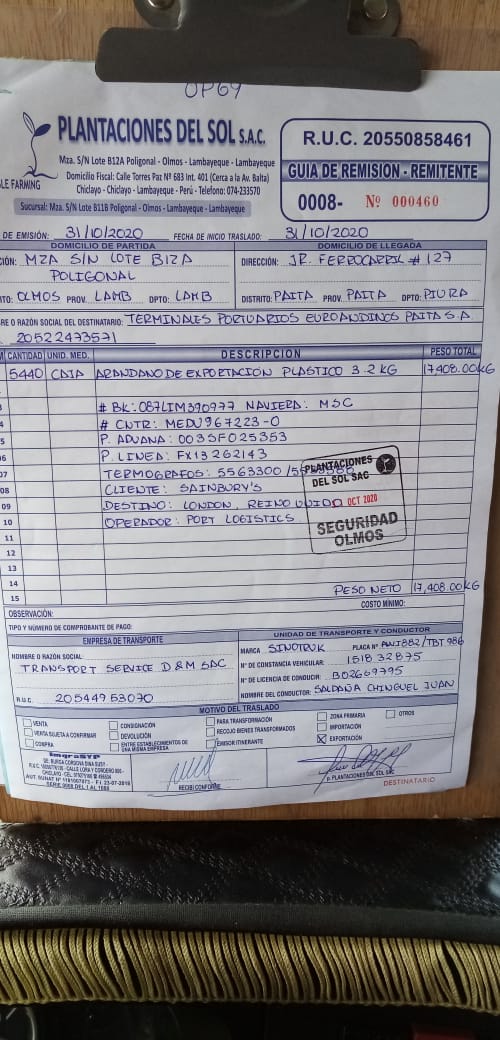 OP69
PLANTACIONES DEL SOL S.A.C.
Mza. S/N Lote B12A Poligonal - Olmos - Lambayeque - Lambayeque
Domicilio Fiscal: Calle Torres Paz Nº 683 Int. 401 (Cerca a la Av. Balta)
Chiclayo - Chiclayo - Lambayeque - Perú - Telefono: 074-233570
LE FARMING
Sucursal: Mza. S/N Lote B11B Poligonal - Olmos - Lambayeque - Lambayeque
R.U.C. 20550858461
GUIA DE REMISION - REMITENTE
0008- Nº 000460
DE EMISIÓN: 31/10/2020 FECHA DE INICIO TRASLADO: 31/10/2020
DOMICILIO DE PARTIDA DOMICILIO DE LLEGADA
CIÓN: MZA S/N LOTE B12A DIRECCIÓN: JR. FERROCARRIL # 127
POLIGONAL
ITO: OLMOS PROV. LAMB DPTO: LAMB DISTRITO: PAITA PROV. PAITA DPTO: PIURA
RE O RAZÓN SOCIAL DEL DESTINATARIO: TERMINALES PORTUARIOS EUROANDINOS PAITA S.A.
20522473571
CANTIDAD UNID. MED. DESCRIPCION PESO TOTAL
5440 CAJA ARANDANO DE EXPORTACIÓN PLASTICO 3.2 KG 17,408.00 KG
3 # BK: 087LIM390977 NAVIERA: MSC
4 # CNTR: MEDU967223-0
5 P. ADUANA: 0035F025353
6 P. LINEA: FX13262143
07 TERMOGRAFOS: 5563300
08 CLIENTE: SAINBURY'S
09 DESTINO: LONDON, REINO UNIDO
10 OPERADOR: PORT LOGISTICS
11
12
13
14
15 PESO NETO 17,408.00 KG
PLANTACIONES
DEL SOL SAC
OCT 2020
SEGURIDAD
OLMOS
OBSERVACIÓN: COSTO MÍNIMO:
TIPO Y NÚMERO DE COMPROBANTE DE PAGO:
EMPRESA DE TRANSPORTE
NOMBRE O RAZÓN SOCIAL:
TRANSPORT SERVICE D&M SAC
R.U.C. 20544953070
UNIDAD DE TRANSPORTE Y CONDUCTOR
MARCA SINOTRUK PLACA Nº AWJ882/TBT986
Nº DE CONSTANCIA VEHICULAR: 151832875
Nº DE LICENCIA DE CONDUCIR: B02669795
NOMBRE DEL CONDUCTOR: SALDAÑA CHINGUEL JUAN
MOTIVO DEL TRASLADO
VENTA CONSIGNACIÓN PARA TRANSFORMACIÓN ZONA PRIMARIA OTROS
VENTA SUJETA A CONFIRMAR DEVOLUCIÓN RECOJO BIENES TRANSFORMADOS IMPORTACIÓN
COMPRA ENTRE ESTABLECIMIENTOS DE UNA MISMA EMPRESA EMISOR ITINERANTE X EXPORTACIÓN
ImgraSYP
SERIE 0008 DEL 1 AL 1000
RECIBI CONFORME
P. PLANTACIONES DEL SOL SAC
DESTINATARIO